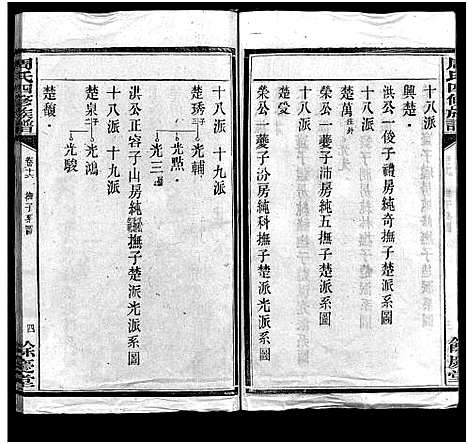 周氏四修族譜
十八派
興楚
洪公一俊子禮房純奇撫子楚派系圖
十八派
楚萬 往外
榮公一夔子沛房純五撫子楚派系圖
十八派
楚愛
榮公一夔子汾房純科撫子楚派光派系圖
十八派 十九派
楚琇 子 光輔
光點
光三
洪公正容子山房純撫子楚派光派系圖
十八派 十九派
楚泉 子 光鴻
光駿
楚馥
周氏四修族譜
卷十六 撫子系圖
四
餘慶堂